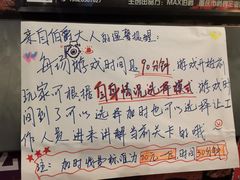 主创出品方: MAX伯爵
来自伯爵大人的温馨提醒:
每场游戏时间是90分钟 游戏开始后
玩家可根据自身情况选择模式 游戏时
间到了可以选择加时也可以选择让工
作人员进来讲解当前关卡的哦
注: 加时收费标准为30元一位,时间30分钟!